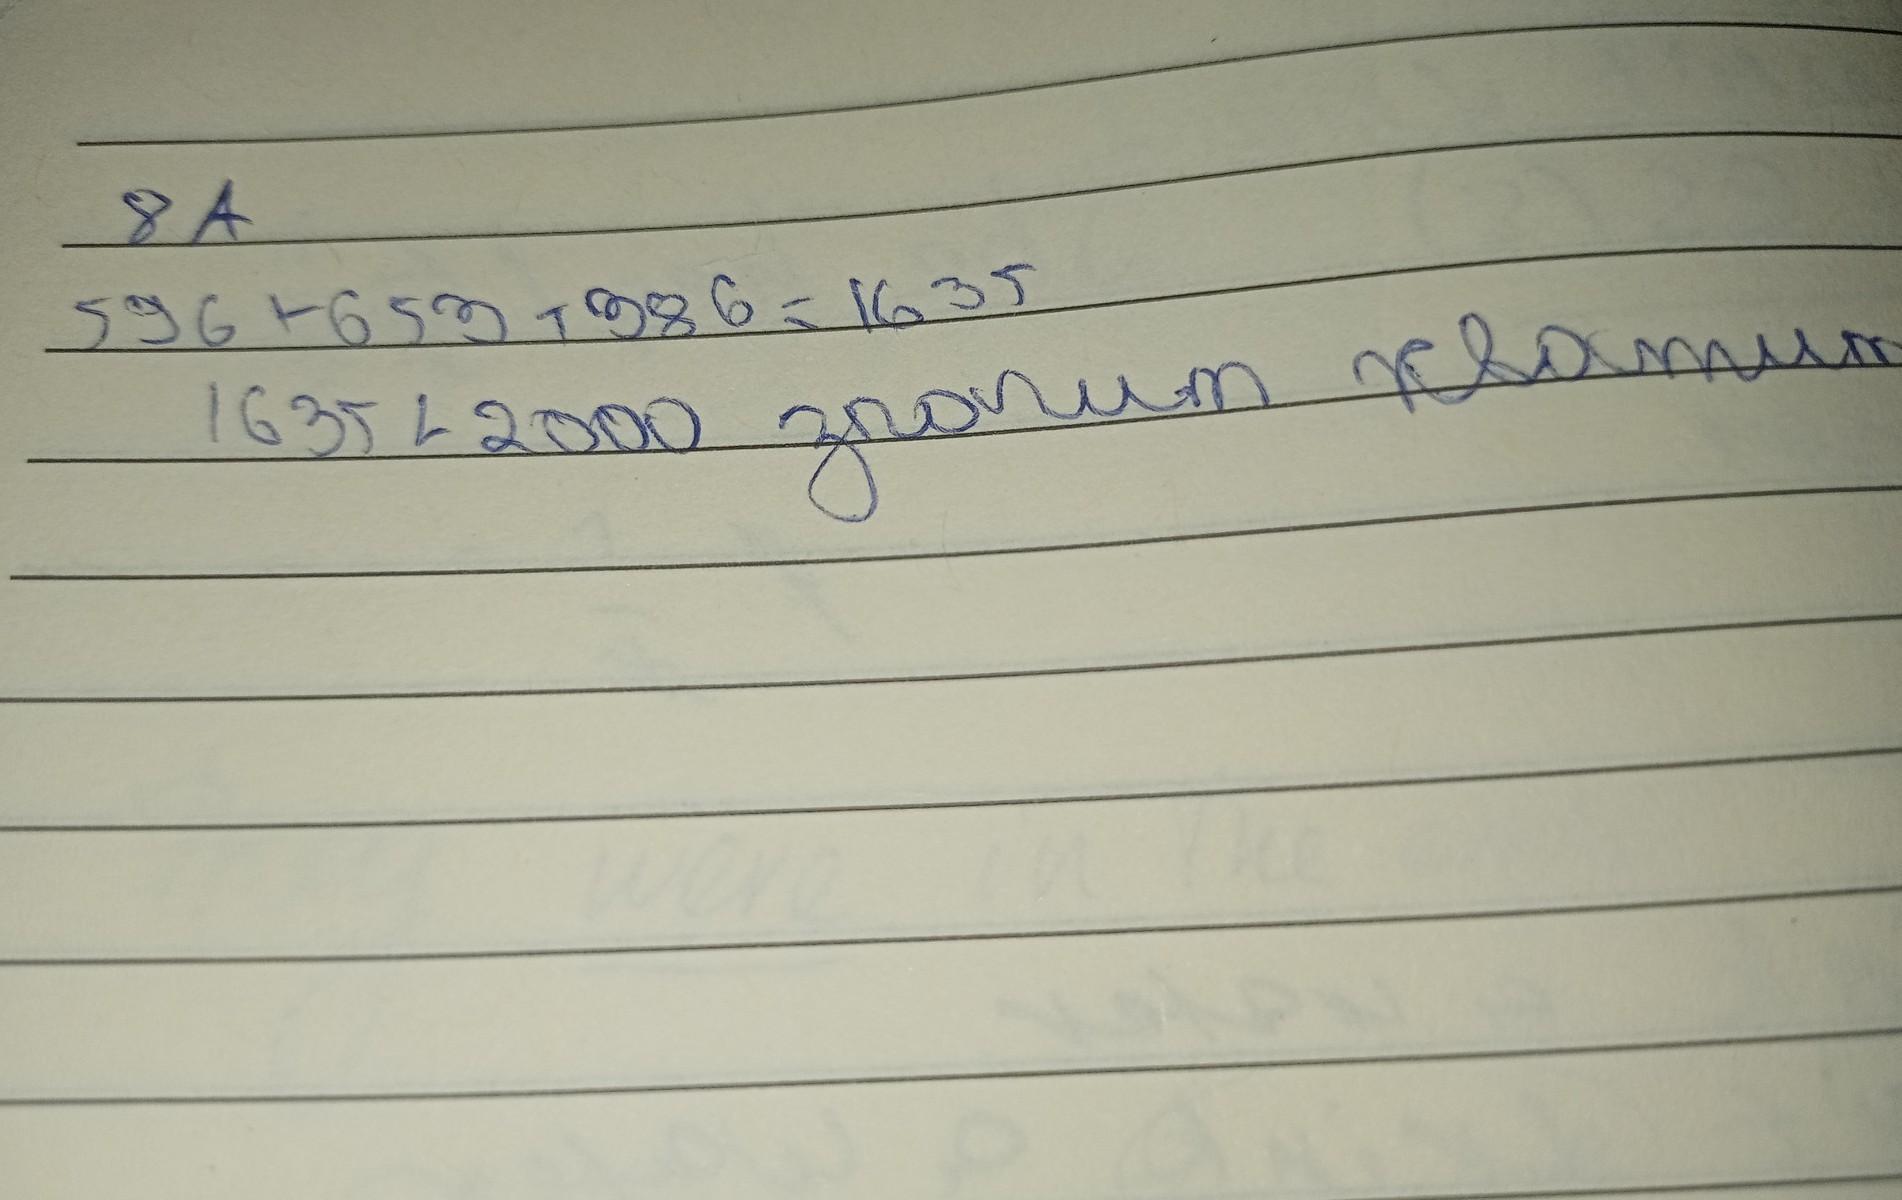 8 А
596+653+386=1635
1635<2000 значит хватит